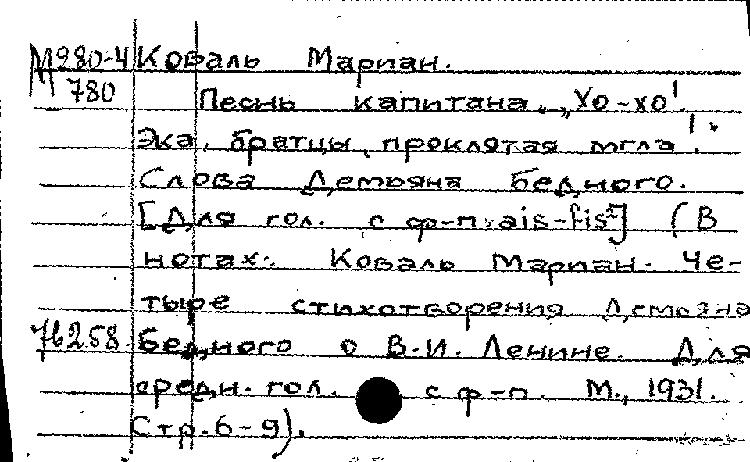 М280-4 Коваль Мариан.
780 Песнь капитана. „Хо-хо!
Эка, братцы, проклятая мгла!".
Слова Демьяна Бедного.
[Для гол. с ф-п. ais-fis²] (В
нотах: Коваль Мариан. Че-
тыре стихотворения Демьяна
76258 Бедного о В.И. Ленине. Для
средн. гол. с ф-п. М., 1931.
Стр. 6-9).